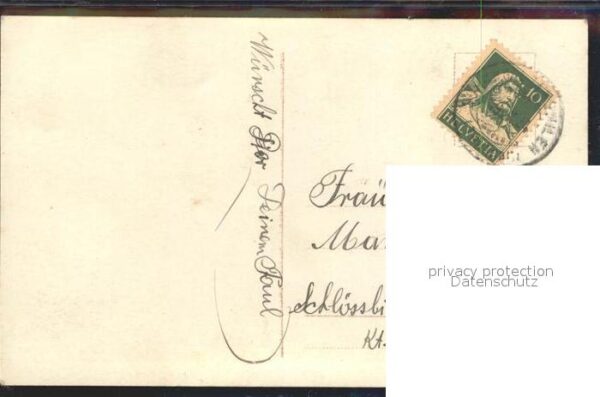 Wünscht Dier Deinem Paul
10
HELVETIA
Fräu
Ma
Schlössli
Kt.
privacy protection
Datenschutz